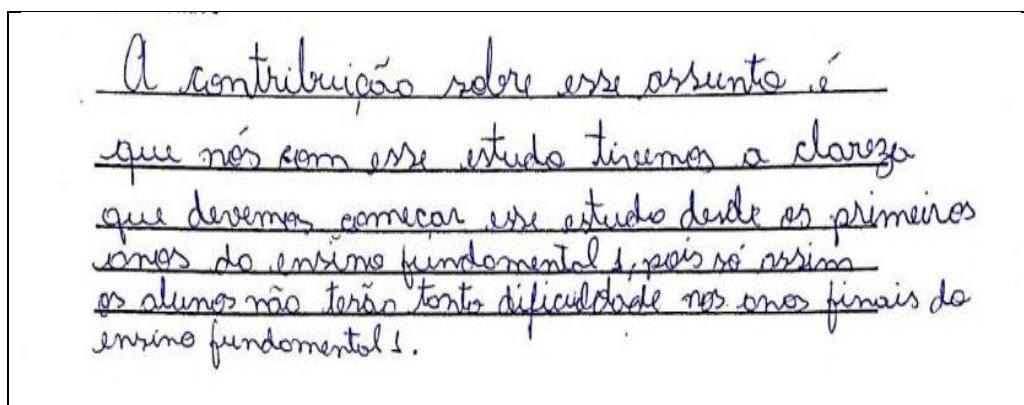 A contribuição sobre esse assunto é
que nós com esse estudo tivemos a clareza
que devemos começar esse estudo desde os primeiros
anos do ensino fundamental 1, pois só assim
os alunos não terão tanto dificuldade nos anos finais do
ensino fundamental 1.